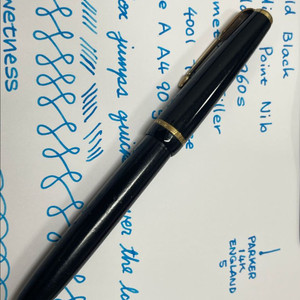 Black
Point Nib
960s
ller
A A4 90 g
ox jumps quick ver the la
wetness
PARKER
14K
ENGLAND
5